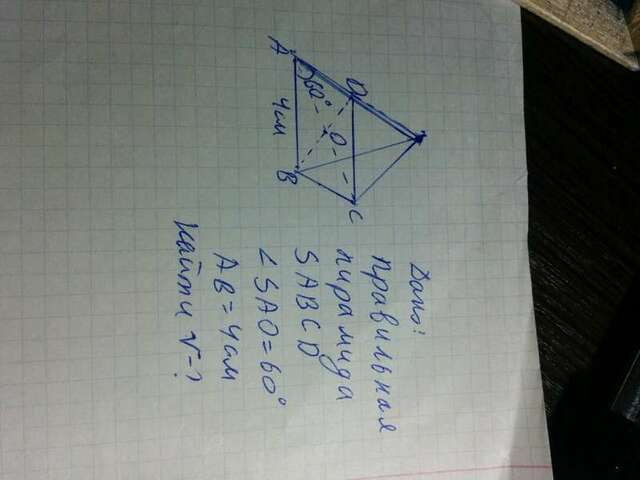 D
C
O
60°
A
4см
B
Дано:
правильная
пирамида
SABCD
∠SAO=60°
AB=4см
Найти V-?